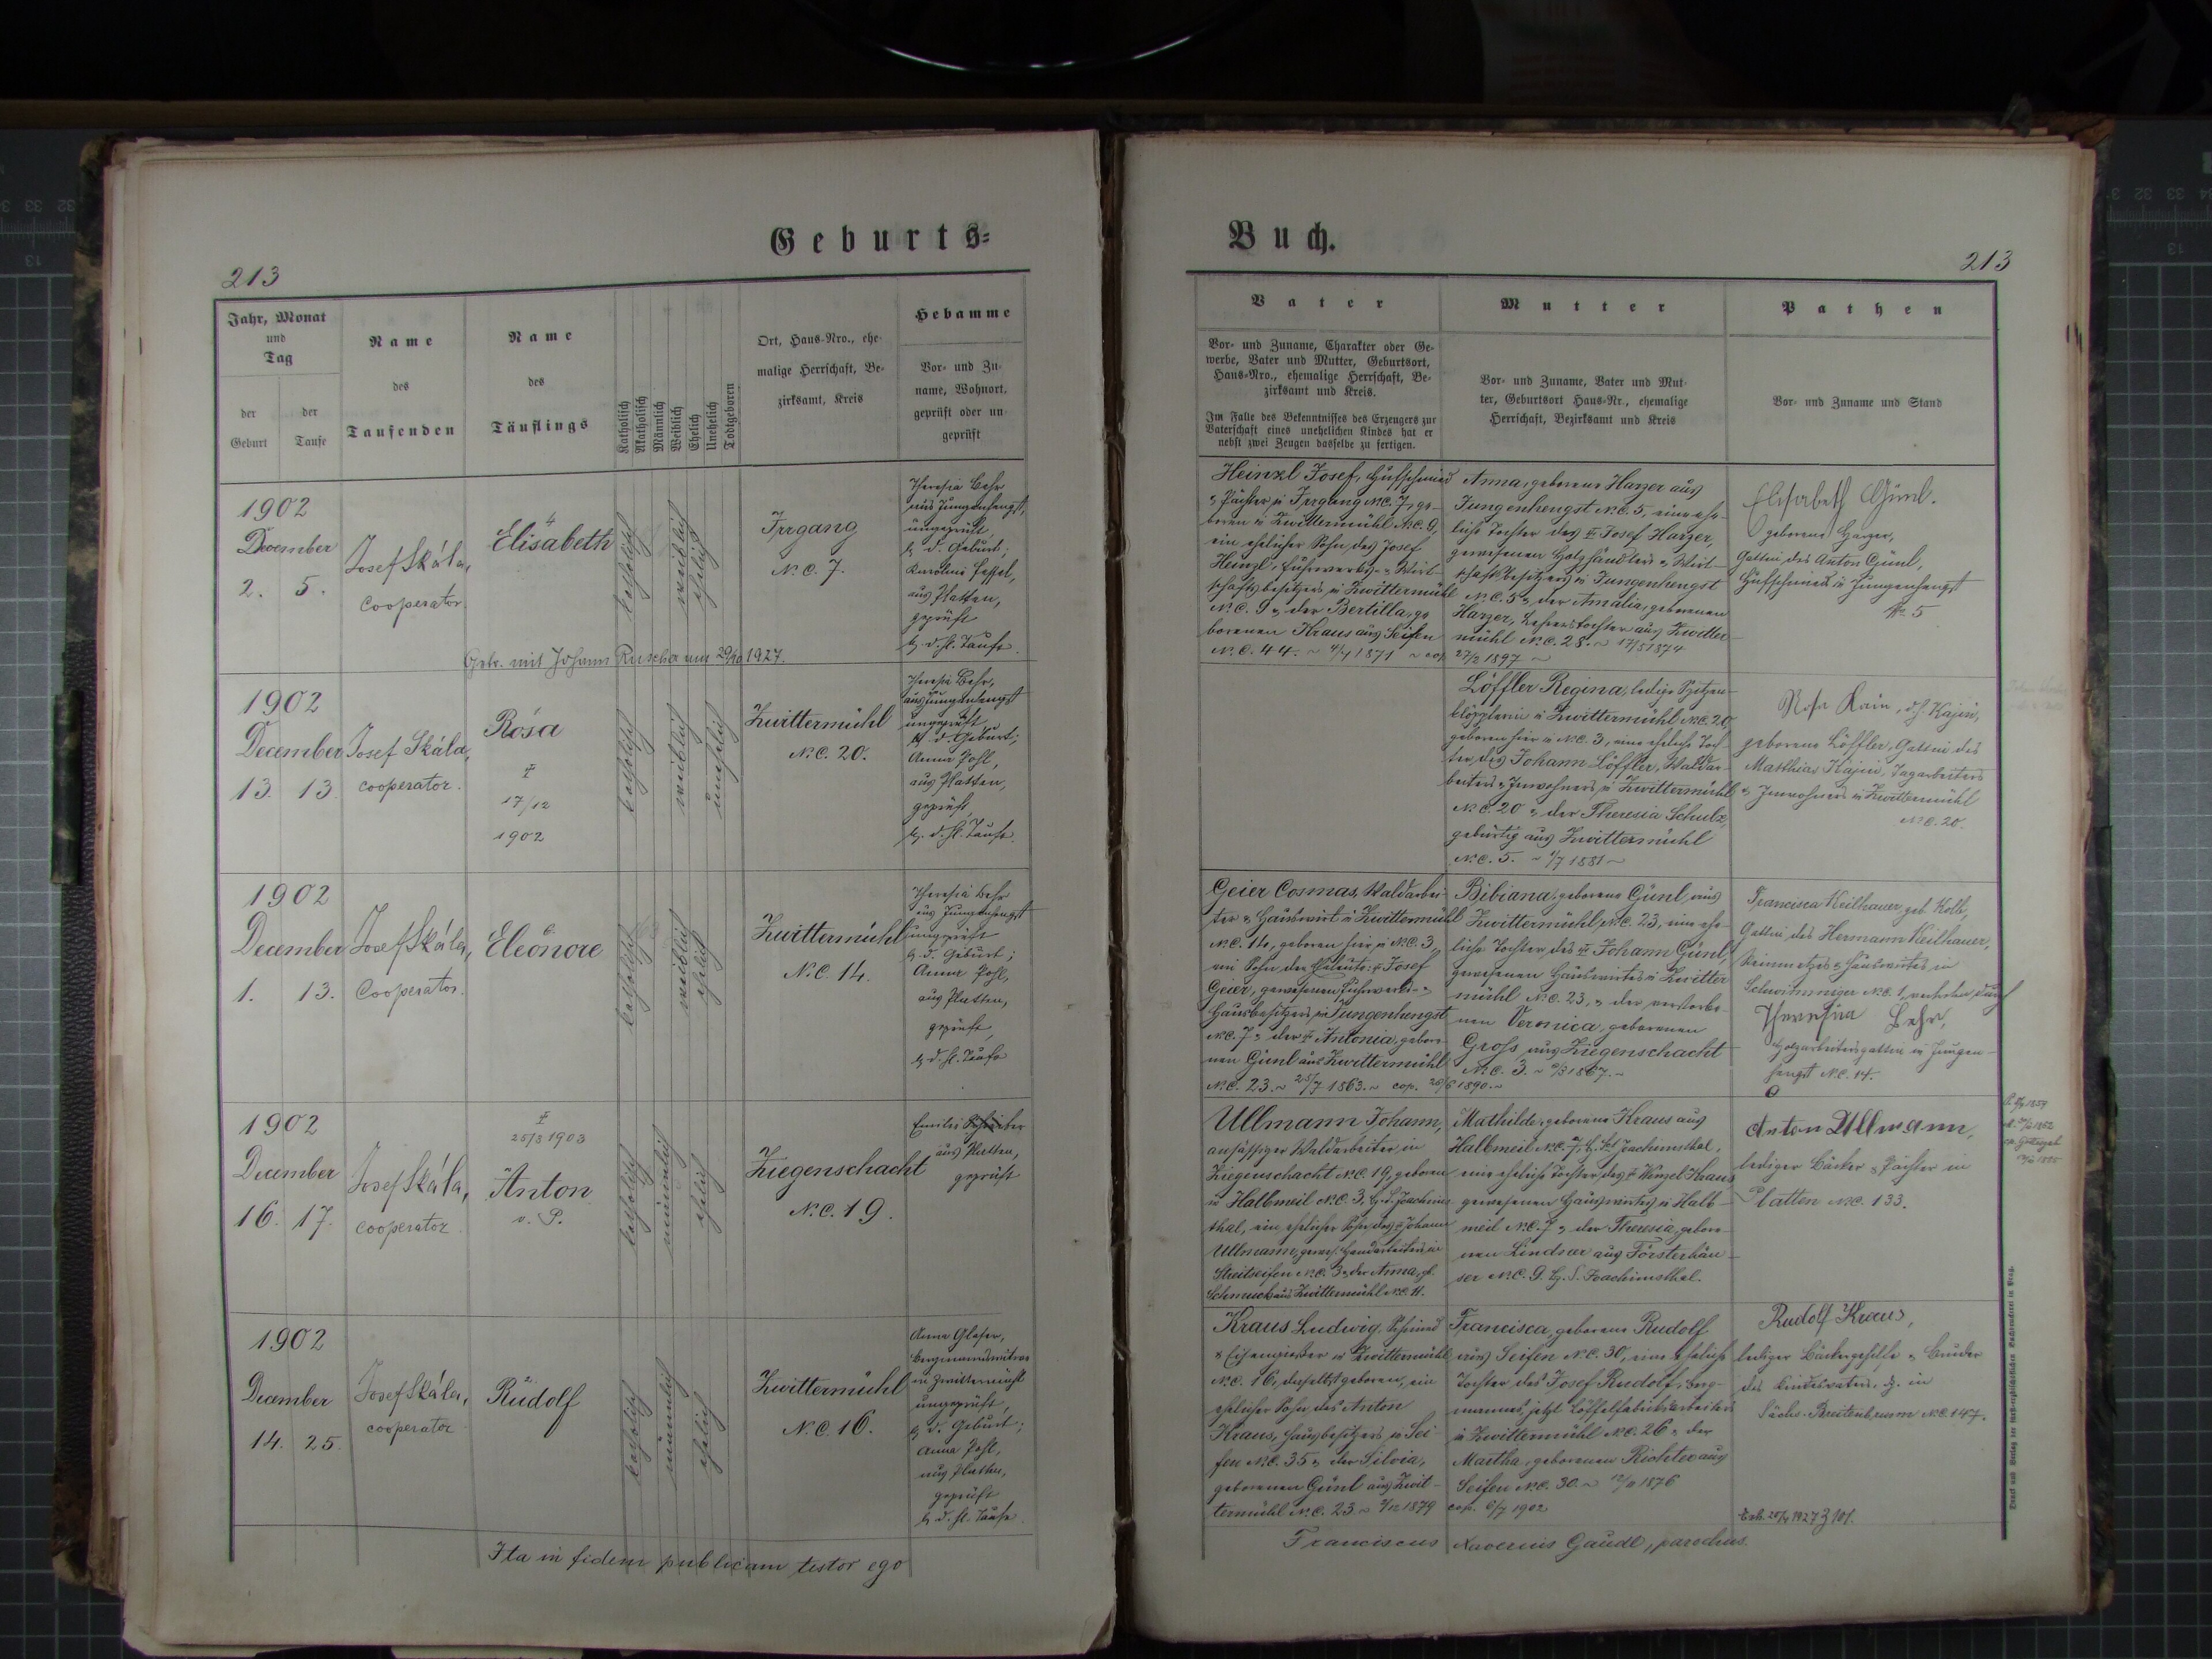 Geburts-
213
Jahr, Monat
und
Tag
der
Geburt
der
Taufe
Name
des
Taufenden
Name
des
Täuflings
Katholisch
Akatholisch
Männlich
Weiblich
Ehelich
Unehelich
Todtgeboren
Ort, Haus-Nro., ehe-
malige Herrschaft, Be-
zirksamt, Kreis
Hebamme
Vor- und Zu-
name, Wohnort,
geprüft oder un-
geprüft
1902
December
2. 5.
Josef Skála,
Cooperator.
Elisabeth
katholisch
weiblich
ehelich
Irrgang
N.C. 7.
Theresia Behr
aus Jungenhengst,
ungeprüft
b. d. Geburt;
Karoline
aus Platten,
geprüft
b. d. hl. Taufe.
Getr. mit Johann Ruscha am 29/10 1927.
1902
December
13. 13.
Josef Skála,
cooperator.
Rosa
†
17/12
1902
katholisch
weiblich
unehelich
Zwittermühl
N.C. 20.
Theresia Behr,
aus Jungenhengst
ungeprüft
b. d. Geburt;
Anna Pohl,
aus Platten,
geprüft,
b. d. hl. Taufe.
1902
December
1. 13.
Josef Skála,
Cooperator.
Eleonore
katholisch
weiblich
ehelich
Zwittermühl
N.C. 14.
Theresia Behr
aus Jungenhengst
ungeprüft
b. d. Geburt;
Anna Pohl,
aus Platten,
geprüft,
b. d. hl. Taufe
1902
December
16. 17.
Josef Skála,
cooperator.
†
25/3 1903
Anton
v. P.
katholisch
männlich
ehelich
Ziegenschacht
N.C. 19.
Emilie
aus Platten,
geprüft
1902
December
14. 25.
Josef Skála,
cooperator
Rudolf
katholisch
männlich
ehelich
Zwittermühl
N.C. 16.
Anna Glaser,
Bergmannswitwe
in Zwittermühl
ungeprüft,
b. d. Geburt;
Anna Pohl,
aus Platten,
geprüft
b. d. hl. Taufe.
Ita in fidem publicam testor ego
Buch.
213
Vater
Vor- und Zuname, Charakter oder Ge-
werbe, Vater und Mutter, Geburtsort,
Haus-Nro., ehemalige Herrschaft, Be-
zirksamt und Kreis.
Im Falle des Bekenntnisses des Erzeugers zur
Vaterschaft eines unehelichen Kindes hat er
nebst zwei Zeugen dasselbe zu fertigen.
Mutter
Vor- und Zuname, Vater und Mut-
ter, Geburtsort Haus-Nr., ehemalige
Herrschaft, Bezirksamt und Kreis
Pathen
Vor- und Zuname und Stand
Heinzl Josef, Hufschmied
u. Pächter in Irrgang N.C. 7, ge-
boren in Zwittermühl N.C. 9,
ein ehelicher Sohn des Josef
Heinzl, Fuhrwerks- u. Wirt-
schaftsbesitzers in Zwittermühl
N.C. 9 u. der Bertilla, ge-
borenen Kraus aus Seifen
N.C. 44. ~ 4/4 1871 ~ cop.
Anna, geborene Harzer aus
Jungenhengst N.C. 5, eine ehe-
liche Tochter des † Josef Harzer,
gewesenen Holzhändlers u. Wirt-
schaftsbesitzers in Jungenhengst
N.C. 5 u. der Amalia, geborenen
Harzer, Lehrerstochter aus Zwitter-
mühl N.C. 28. ~ 17/5 1874
27/2 1897 ~
Elisabeth Günl.
geborene Harzer,
Gattin des Anton Günl,
Hufschmied in Jungenhengst
N° 5
Löffler Regina, ledige Spitzen-
klöpplerin in Zwittermühl N.C. 20,
geboren hier in N.C. 3, eine eheliche Toch-
ter des Johann Löffler, Waldar-
beiters u. Inwohners in Zwittermühl
N.C. 20 u. der Theresia Schulz,
gebürtig aus Zwittermühl
N.C. 5. ~ 4/7 1881 ~
Rosa Kain, d. h. Kajin,
geborene Löffler, Gattin des
Matthias Kajin, Tagarbeiters
u. Inwohners in Zwittermühl
N.C. 20.
Geier Cosmas, Waldarbei-
ter u. Hauswirt in Zwittermühl
N.C. 14, geboren hier in N.C. 3,
ein Sohn der Eheleute: † Josef
Geier, gewesenen Fuhrwerks- u.
Hausbesitzers in Jungenhengst
N.C. 7 u. der † Antonia, gebore-
nen Günl aus Zwittermühl
N.C. 23. ~ 25/7 1863. ~ cop.
Bibiana, geborene Günl, aus
Zwittermühl N.C. 23, eine ehe-
liche Tochter des † Johann Günl,
gewesenen Hauswirtes in Zwitter-
mühl N.C. 23, u. der verstorbe-
nen Veronica, geborenen
Groß aus Ziegenschacht
N.C. 3. ~ 1867. ~
1890. ~
Francisca Keilhauer, geb. Kolb,
Gattin des Hermann Keilhauer,
Steinmetzes u. Hauswirtes in
Schwimmiger N.C. 1, vertreten durch
Theresia Behr,
Holzarbeitersgattin in Jungen-
hengst N.C. 14.
Ullmann Johann,
ansässiger Waldarbeiter in
Ziegenschacht N.C. 19, geboren
in Halbmeil N.C. 3, Joachims-
thal, ein ehelicher Sohn des † Johann
Ullmann, gewes. Handarbeiters in
Streitseifen N.C. 3 u. der Anna, geb.
Schmuck aus Zwittermühl N.C. 11.
Mathilde, geborene Kraus aus
Halbmeil N.C. 7, Joachimsthal,
eine eheliche Tochter des † Wenzel Kraus
gewesenen Hauswirtes in Halb-
meil N.C. 7 u. der Theresia, gebore-
nen Lindner aus Försterhäu-
ser N.C. 9. Joachimsthal.
Anton Ullmann,
lediger Bäcker u. Pächter in
Platten N.C. 133.
Kraus Ludwig, Schmied
u. Eisengießer in Zwittermühl
N.C. 16, daselbst geboren, ein
ehelicher Sohn des Anton
Kraus, Hausbesitzers in Sei-
fen N.C. 35 u. der Silvia,
geborenen Günl aus Zwit-
termühl N.C. 23 ~ 1879
Francisca, geborene Rudolf
aus Seifen N.C. 30, eine eheliche
Tochter des Josef Rudolf, Berg-
mannes, jetzt Löffelfabriksarbeiters
in Zwittermühl N.C. 26 u. der
Martha, geborenen Richter aus
Seifen N.C. 30. ~ 1876
cop. 6/7 1902.
Rudolf Kraus,
lediger Bäckergehilfe u. Bruder
des Kindesvaters, dz. in
Sächs. Breitenbrunn N.C. 147.
Franciscus Xaverius Gaudl, parochus.